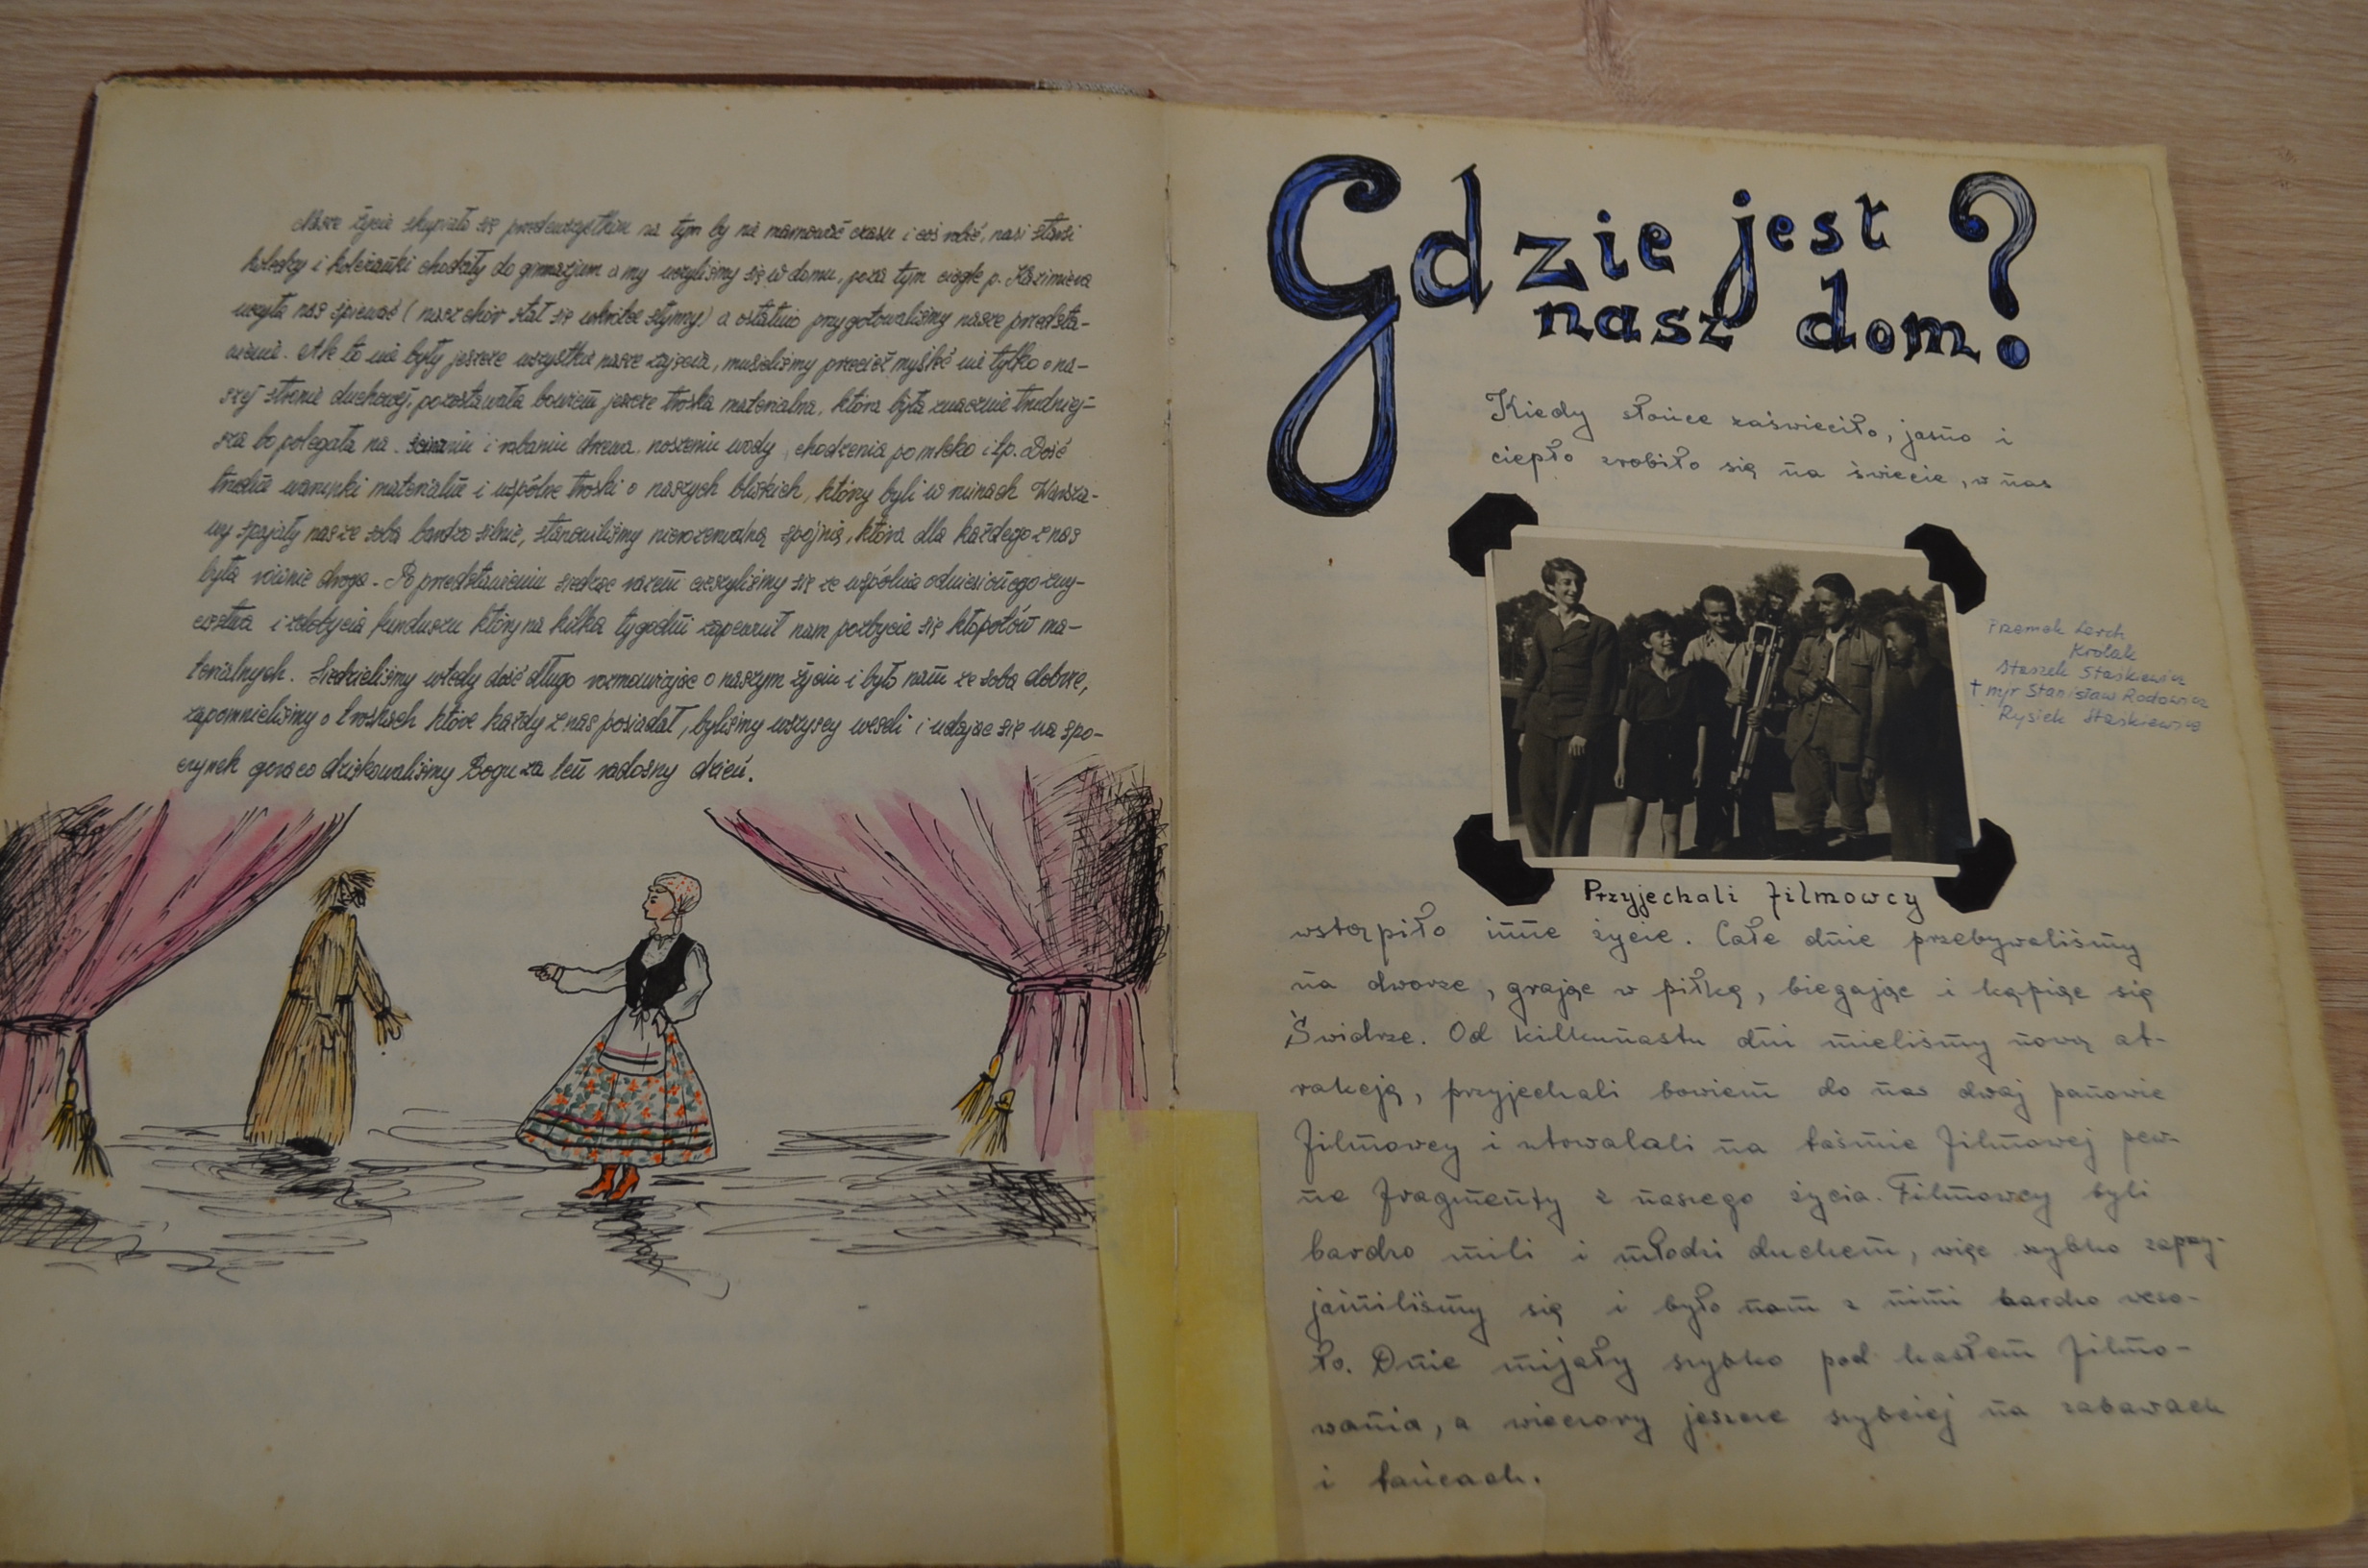 Nasze życie skupiało się przedewszystkim na tym by nie marnować czasu i coś robić, nasi starsi
koledzy i koleżanki chodziły do gimnazjum a my uczyliśmy się w domu, poza tym ciągle p. Kazimiera
uczyła nas śpiewać (nasz chór stał się wkrótce słynny) a ostatnio przygotowaliśmy nasze przedsta-
wienie. Ale to nie były jeszcze wszystkie nasze zajęcia, musieliśmy przecież myśleć nie tylko o na-
szej stronie duchowej, pozostawała bowiem jeszcze troska materialna, która była znacznie trudniej-
sza bo polegała na ścinaniu i rąbaniu drzewa, noszeniu wody, chodzenia po mleko itp. Dość
trudne warunki materialne i wspólne troski o naszych bliskich, którzy byli w ruinach Warsza-
wy spajały nas ze sobą bardzo silnie, stanowiliśmy nierozerwalną spójnię, która dla każdego z nas
była równie droga. Po przedstawieniu siedząc razem cieszyliśmy się ze wspólnie odniesionego zwy-
cięstwa i zdobycia funduszu który na kilka tygodni zapewnił nam pozbycie się kłopotów ma-
terialnych. Siedzieliśmy wtedy dość długo rozmawiając o naszym życiu i było nam ze sobą dobrze,
zapomnieliśmy o troskach które każdy z nas posiadał, byliśmy wszyscy weseli i udając się na spo-
czynek gorąco dziękowaliśmy Bogu za ten radosny dzień.
Gdzie jest
nasz dom?
Kiedy słońce zaświeciło, jasno i
ciepło zrobiło się na świecie, w nas
Przemek Lerch
Krolak
Staszek Staśkiewicz
† mjr Stanisław Rodowicz
Rysiek Staśkiewicz
Przyjechali filmowcy
wstąpiło inne życie. Całe dnie przebywaliśmy
na dworze, grając w piłkę, biegając i kąpiąc się
Świdrze. Od kilkunastu dni mieliśmy nową at-
rakcję, przyjechali bowiem do nas dwaj panowie
filmowcy i utrwalali na taśmie filmowej pew-
ne fragmenty z naszego życia. Filmowcy byli
bardzo mili i młodzi duchem, więc szybko zaprzy-
jaźniliśmy się i było nam z nimi bardzo weso-
ło. Dnie mijały szybko pod hasłem filmo-
wania, a wieczory jeszcze szybciej na zabawach
i tańcach.